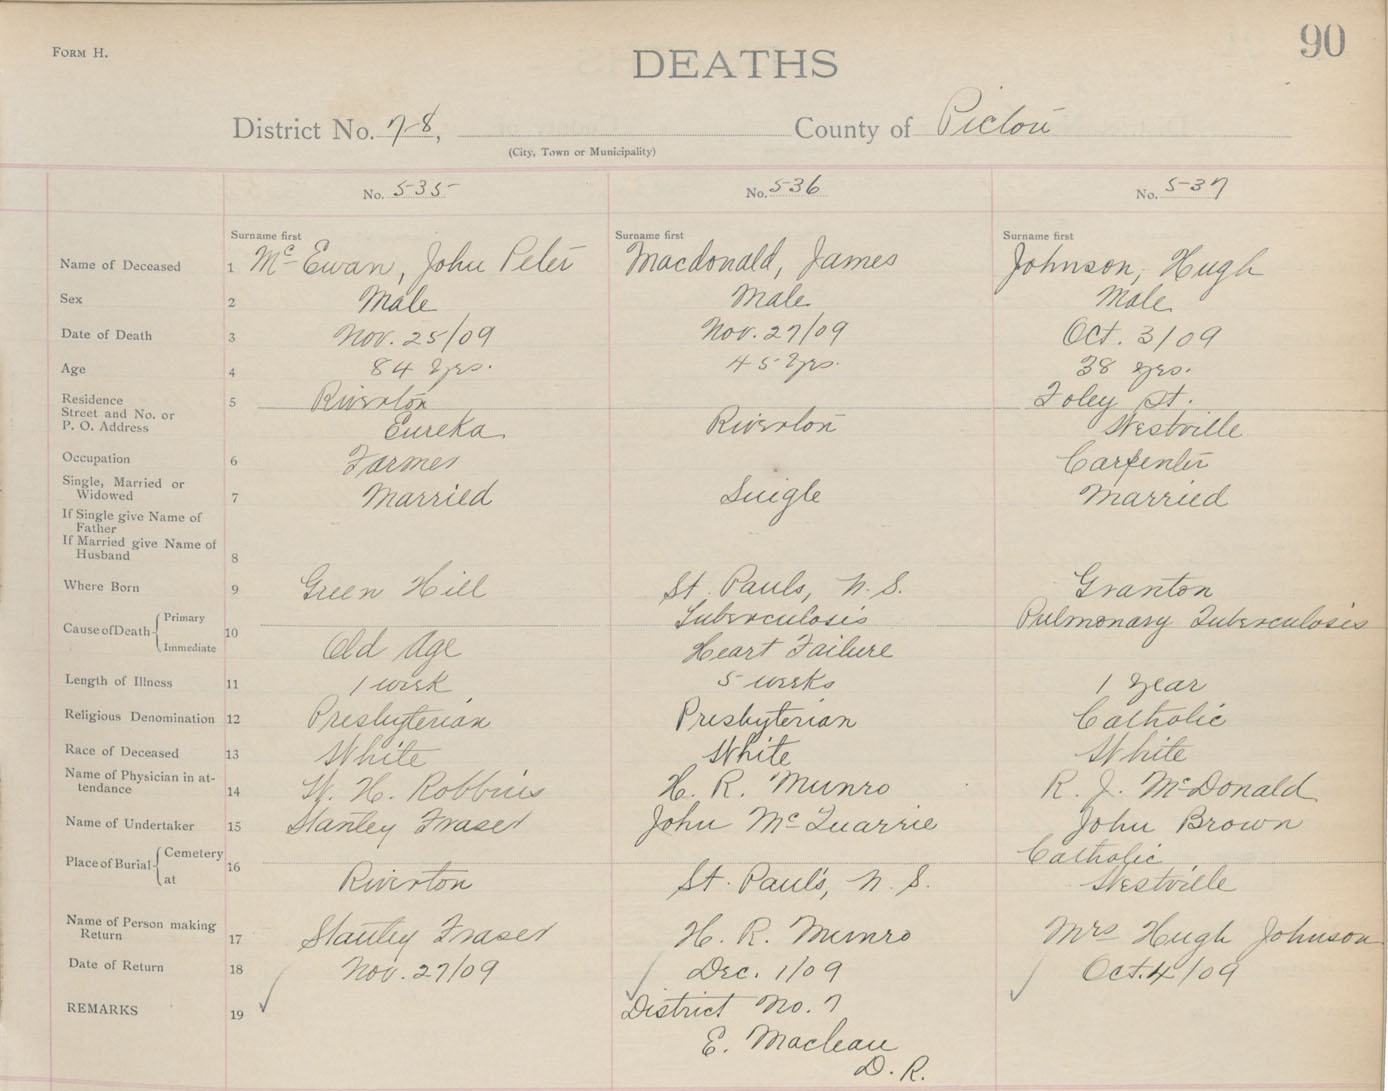 FORM H.
DEATHS
90
District No. 7-8, County of Pictou
(City, Town or Municipality)
No. 535 No. 536 No. 537
Surname first Surname first Surname first
Name of Deceased 1 McEwan, John Peter Macdonald, James Johnson, Hugh
Sex 2 Male Male Male
Date of Death 3 Nov. 25/09 Nov. 27/09 Oct. 3/09
Age 4 84 yrs. 45 yrs. 38 yrs.
Residence 5 Riverton Foley St.
Street and No. or
P. O. Address Eureka Riverton Westville
Occupation 6 Farmer Carpenter
Single, Married or
Widowed 7 Married Single Married
If Single give Name of
Father
If Married give Name of
Husband 8
Where Born 9 Green Hill St. Pauls, N. S. Granton
Cause of Death Primary Tuberculosis Pulmonary Tuberculosis
10 Immediate Old Age Heart Failure
Length of Illness 11 1 week 5 weeks 1 year
Religious Denomination 12 Presbyterian Presbyterian Catholic
Race of Deceased 13 White White White
Name of Physician in at-
tendance 14 W. H. Robbins H. R. Munro R. J. McDonald
Name of Undertaker 15 Stanley Fraser John McQuarrie John Brown
Place of Burial Cemetery Catholic
16 at Riverton St. Paul's, N. S. Westville
Name of Person making
Return 17 Stanley Fraser H. R. Munro Mrs Hugh Johnson
Date of Return 18 Nov. 27/09 Dec. 1/09 Oct. 4/09
REMARKS 19 District No. 7
E. Maclean
D. R.